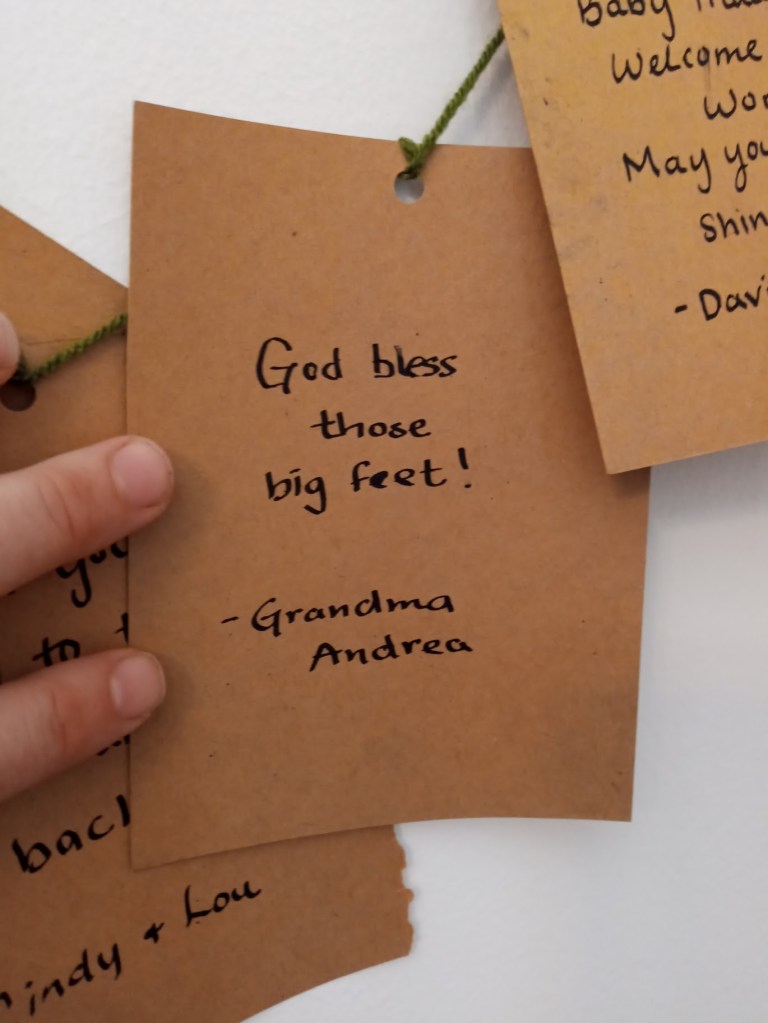 God bless
those
big feet!
- Grandma
Andrea
Baby
Welcome
May you
- Davi
you
to t
back
indy + Lou